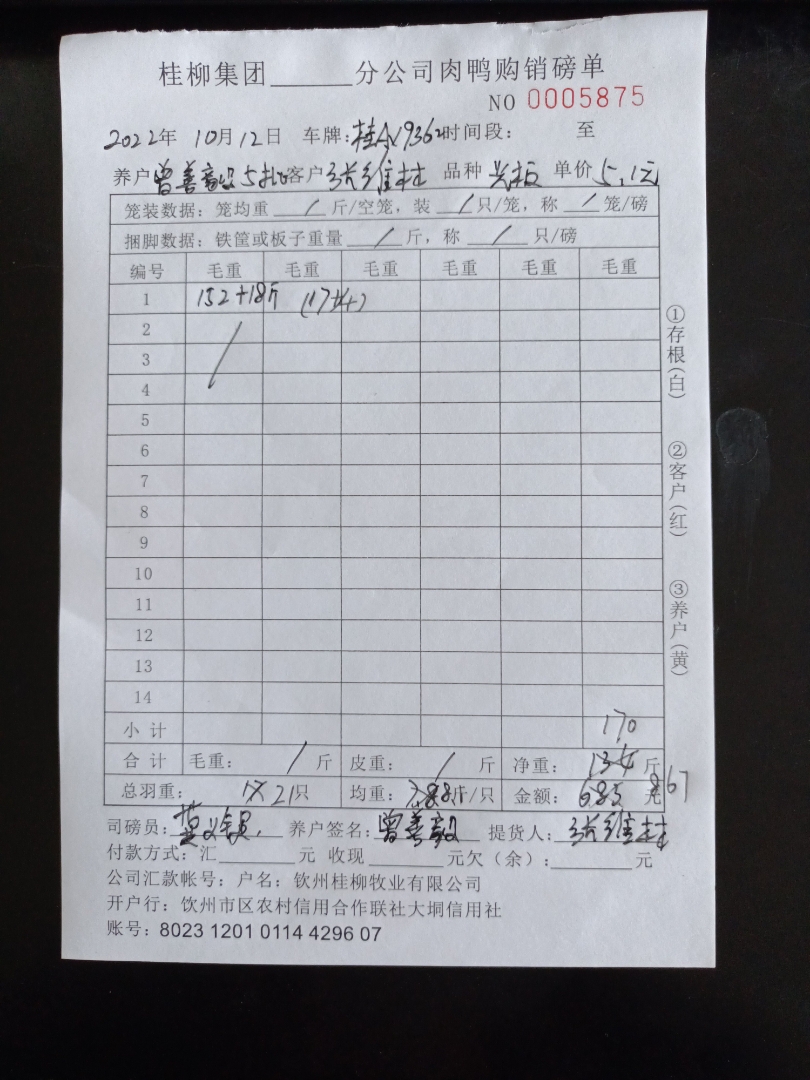 桂柳集团______分公司肉鸭购销磅单
NO 0005875
2022年 10月12日 车牌: 时间段: 至
养户曾善毅 5批 客户 张维村 品种 单价 5.1元
笼装数据: 笼均重 / 斤/空笼, 装 / 只/笼, 称 / 笼/磅
捆脚数据: 铁筐或板子重量 / 斤, 称 / 只/磅
编号 毛重 毛重 毛重 毛重 毛重 毛重
1 152+18斤 (17+4)
2 /
3
4
5
6
7
8
9
10
11
12
13
14
小计 170
合计 毛重: / 斤 皮重: / 斤 净重: 斤
总羽重: 21只 均重: 斤/只 金额: 元 867
司磅员: 养户签名: 曾善毅 提货人: 张维村
付款方式: 汇______元 收现______元欠(余):______元
公司汇款帐号: 户名: 钦州桂柳牧业有限公司
开户行: 钦州市区农村信用合作联社大垌信用社
账号: 8023 1201 0114 4296 07
①存根(白)
②客户(红)
③养户(黄)